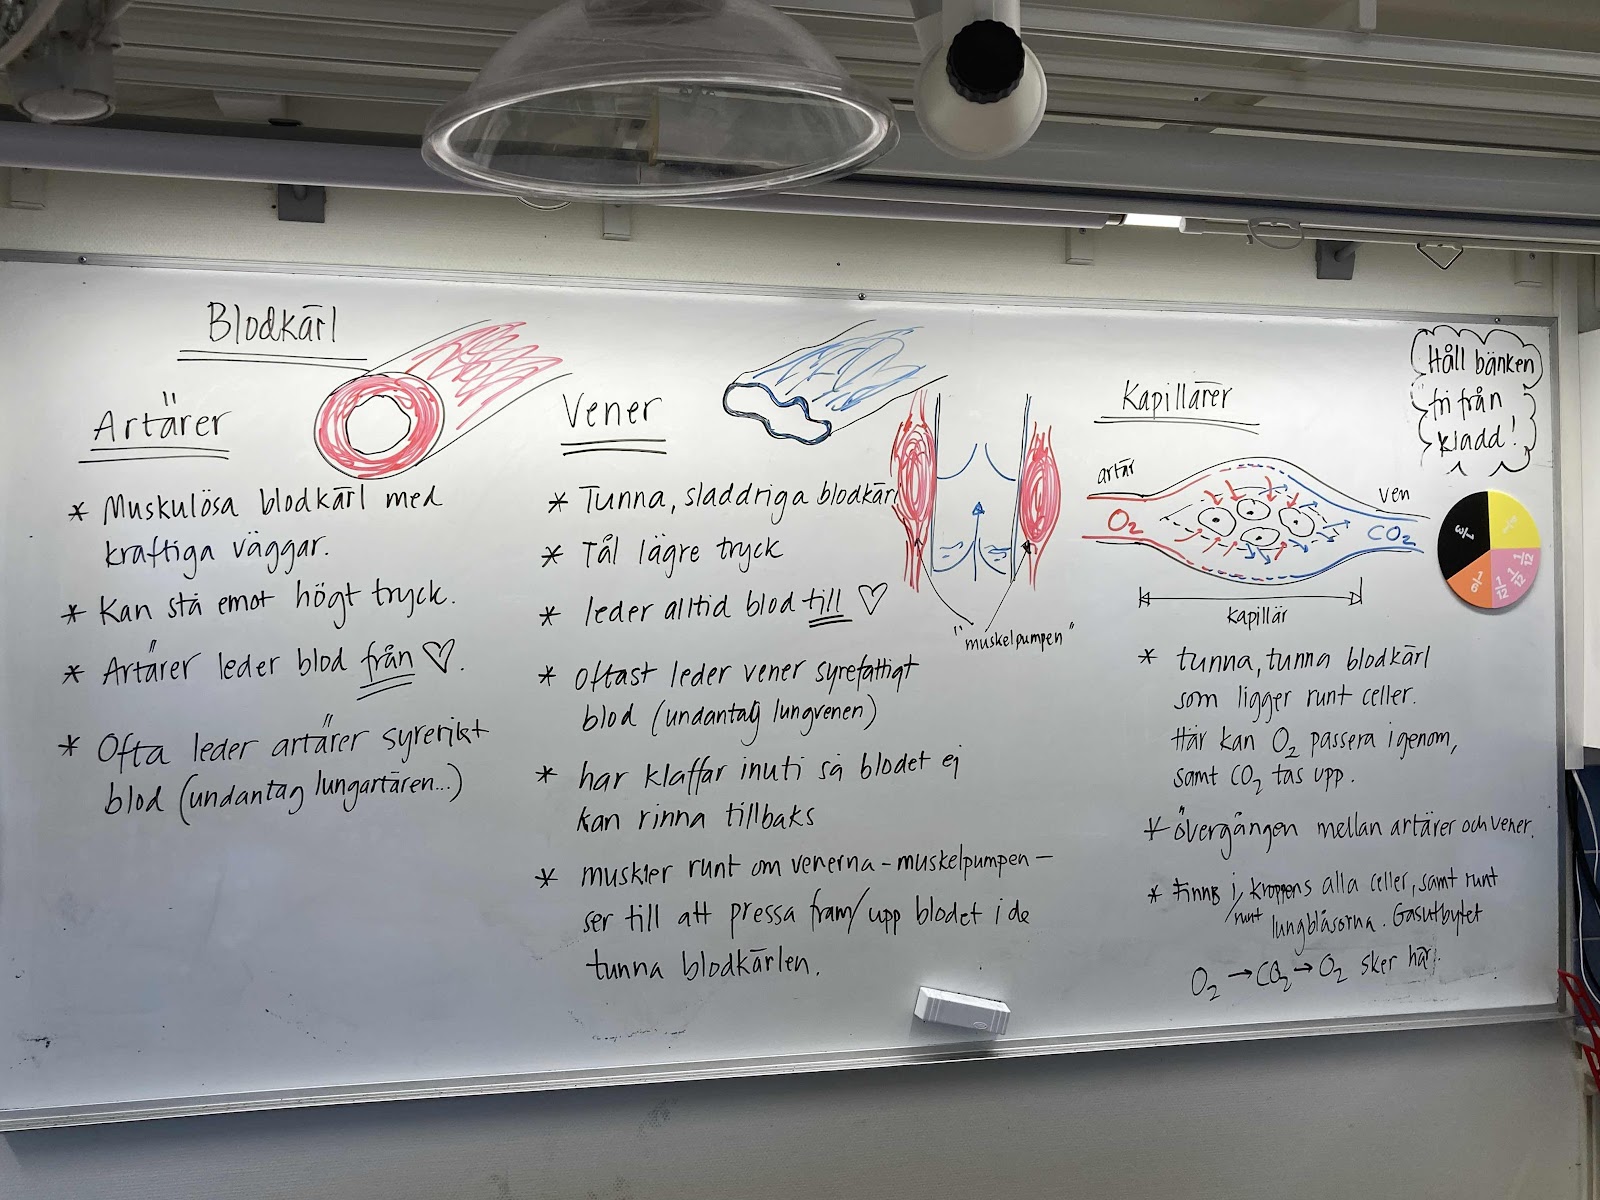 Blodkärl
Artärer
* Muskulösa blodkärl med
kraftiga väggar.
* Kan stå emot högt tryck.
* Artärer leder blod från ♡.
* Ofta leder artärer syrerikt
blod (undantag lungartären...)
Vener
* Tunna, sladdriga blodkärl
* Tål lägre tryck
* leder alltid blod till ♡
* oftast leder vener syrefattigt
blod (undantag lungvenen)
* har klaffar inuti så blodet ej
kan rinna tillbaks
* muskler runt om venerna - muskelpumpen -
ser till att pressa fram/upp blodet i de
tunna blodkärlen.
"muskelpumpen"
Kapillärer
artär
ven
O₂
CO₂
kapillär
* tunna, tunna blodkärl
som ligger runt celler.
Här kan O₂ passera igenom,
samt CO₂ tas upp.
* övergången mellan artärer och vener.
* Finns i/runt kroppens alla celler, samt runt
lungblåsorna. Gasutbytet
O₂ → CO₂ → O₂ sker här.
Håll bänken
fri från
kladd!
1/3
1/6
1/12
1/12
1/12